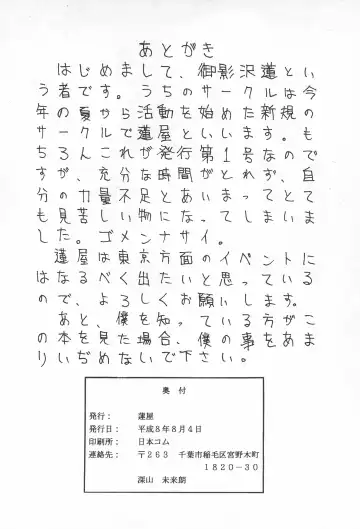 あとがき
はじめまして、御影沢蓮とい
う者です。うちのサークルは今
年の夏から活動を始めた新規の
サークルで蓮屋といいます。も
ちろんこれが発行第1号なので
すが、充分な時間がとれず、自
分の力量不足とあいまってとて
も見苦しい物になってしまいま
した。ゴメンナサイ。
蓮屋は東京方面のイベントに
はなるべく出たいと思っている
ので、よろしくお願いします。
あと、僕を知っている方がこ
の本を見た場合、僕の事をあま
りいぢめないで下さい。
奥付
発行： 蓮屋
発行日： 平成8年8月4日
印刷所： 日本コム
連絡先： 〒263 千葉市稲毛区宮野木町
1820-30
深山 未来朗